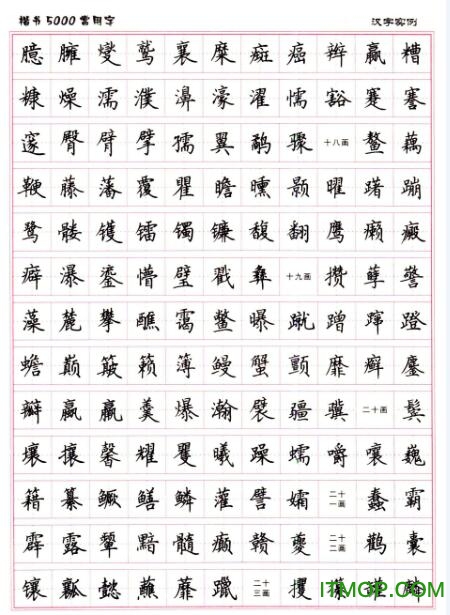 楷书5000常用字 汉字实例
臆 臃 燮 鹫 襄 糜 癍 癌 辫 赢 糟
糠 燥 濡 濮 濞 濠 濯 懦 豁 蹇 謇
邃 臀 臂 擘 孺 翼 鹬 骤 十八画 鳌 藕
鞭 藤 藩 覆 瞿 瞻 曛 颢 曜 躇 蹦
鹭 髅 镬 镭 镯 镰 馥 翻 鹰 癞 癜
癖 瀑 鎏 懵 璧 戳 彝 十九画 攒 孽 警
藻 麓 攀 醮 霭 鳖 曝 蹴 蹭 蹿 蹬
蟾 巅 簸 籁 簿 鳗 蟹 颤 靡 癣 鏖
瓣 羸 羹 爆 瀚 襞 疆 骥 二十画 鬓
壤 攘 馨 耀 矍 曦 躁 蠕 嚼 嚷 巍
籍 纂 鳜 鳝 鳞 灌 譬 孀 二十一画 蠢 霸
霹 露 颦 黯 髓 癫 赣 夔 二十二画 鹳 囊
镶 瓤 懿 蘸 蘼 躐 二十三画 攫
ITMOP.COM